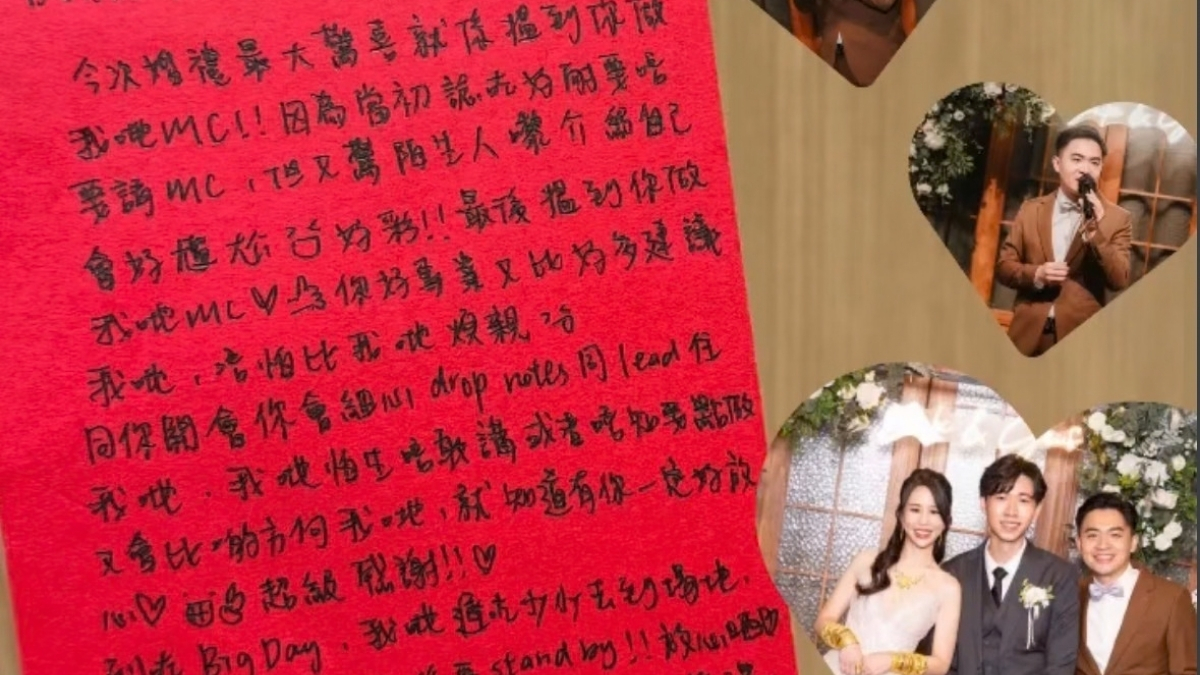 今次婚禮最大驚喜就係搵到你做
我哋MC!! 因為當初諗咗好耐要唔
要請MC,但又驚陌生人嚟介紹自己
會好尷尬 好彩!! 最後搵到你做
我哋MC♡ 你好專業又比好多建議
我哋,唔怕比我哋煩親
同你開會你會細心 drop notes 同 lead 住
我哋,我哋怕生唔敢講或者唔知要點做
又會比啲方向我哋,就知道有你一定好放
心♡ 超級感謝!!♡
到咗 Big Day,我哋遲咗少少去到場地,
stand by!! 放心晒♡